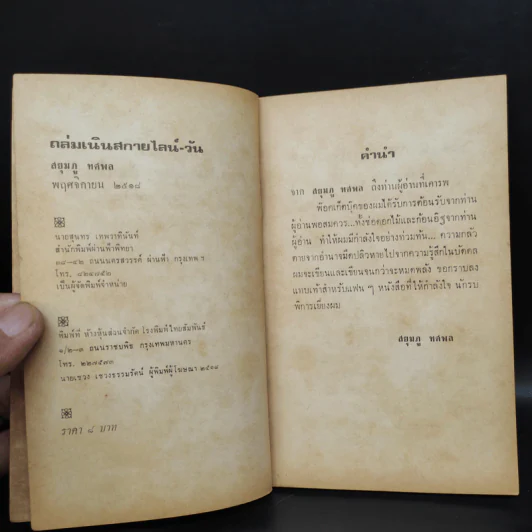 ถล่มเนินสกายไลน์-วัน
สยุมภู ทศพล
พฤศจิกายน ๒๕๑๘
นายสุนทร เทพรรทีนันท์
สำนักพิมพ์ผ่านฟ้าพิทยา
๓๘-๔๒ ถนนนครสวรรค์ ผ่านฟ้า กรุงเทพ ฯ
โทร. ๘๒๔๗๕๒
เป็นผู้จัดพิมพ์จำหน่าย
พิมพ์ที่ ห้างหุ้นส่วนจำกัด โรงพิมพ์ไทยสัมพันธ์
๑/๒-๓ ถนนราชบพิธ กรุงเทพมหานคร
โทร. ๒๒๗๕๗๓
นายเชวง เชวงธรรมรัตน์ ผู้พิมพ์ผู้โฆษณา ๒๕๑๘
ราคา ๘ บาท
คำนำ
จาก สยุมภู ทศพล ถึงท่านผู้อ่านที่เคารพ
พ็อคเก็ตบุ๊คของผมได้รับการต้อนรับจากท่าน
ผู้อ่านพอสมควร...ทั้งช่อดอกไม้และก้อนอิฐจากท่าน
ผู้อ่าน ทำให้ผมมีกำลังใจอย่างท่วมท้น... ความกลัว
ตายจากอำนาจมืดปลิวหายไปจากความรู้สึกในบัดดล
ผมจะเขียนและเขียนจนกว่าจะหมดพลัง ขอกราบลง
แทบเท้าสำหรับแฟน ๆ หนังสือที่ให้กำลังใจ นักรบ
พิการเยี่ยงผม
สยุมภู ทศพล